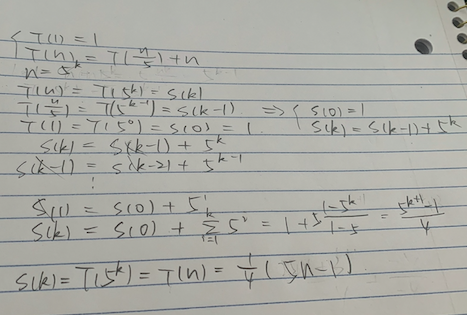 { T(1) = 1
T(n) = T(n/5) + n
n = 5^k
T(n) = T(5^k) = S(k)
T(n/5) = T(5^(k-1)) = S(k-1) => { S(0) = 1
T(1) = T(5^0) = S(0) = 1. S(k) = S(k-1) + 5^k
S(k) = S(k-1) + 5^k
S(k-1) = S(k-2) + 5^(k-1)
⋮
S(1) = S(0) + 5^1
S(k) = S(0) + ∑_{i=1}^{k} 5^i = 1 + 5 (1-5^k)/(1-5) = (5^(k+1) - 1)/4
S(k) = T(5^k) = T(n) = 1/4 (5n-1)